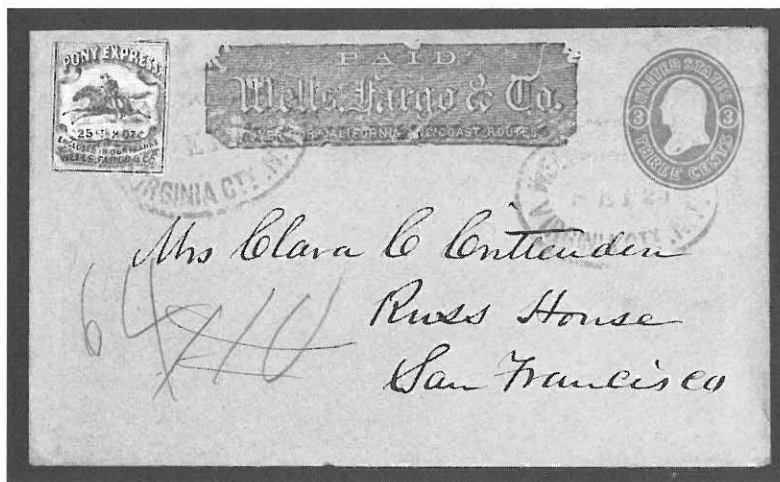 PONY EXPRESS
25 Cts
ENCLOSED IN OUR FRANKS
WELLS, FARGO & CO
PAID
Wells, Fargo & Co.
OVER OUR CALIFORNIA AND COAST ROUTES.
UNITED STATES
3 3
THREE CENTS
VIRGINIA CTY
VIRGINIA CTY
Mrs Clara C Crittenden
Russ House
San Francisco